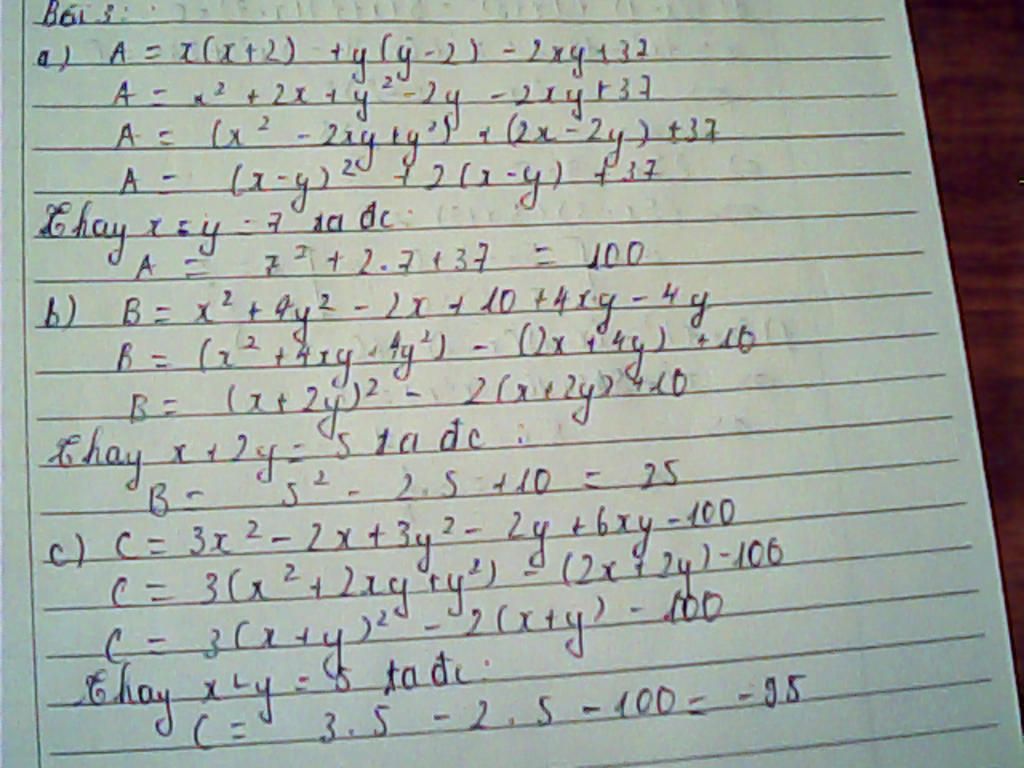 Bài 3:
a) A = x(x+2) + y(y-2) - 2xy + 37
A = x² + 2x + y² - 2y - 2xy + 37
A = (x² - 2xy + y²) + (2x - 2y) + 37
A = (x-y)² + 2(x-y) + 37
Thay x - y = 7 ta đc:
A = 7² + 2.7 + 37 = 100
b) B = x² + 4y² - 2x + 10 + 4xy - 4y
B = (x² + 4xy + 4y²) - (2x + 4y) + 10
B = (x + 2y)² - 2(x + 2y) + 10
Thay x + 2y = 5 ta đc:
B = 5² - 2.5 + 10 = 25
c) C = 3x² - 2x + 3y² - 2y + 6xy - 100
C = 3(x² + 2xy + y²) - (2x + 2y) - 100
C = 3(x+y)² - 2(x+y) - 100
Thay x + y = 5 ta đc:
C = 3.5 - 2.5 - 100 = -95